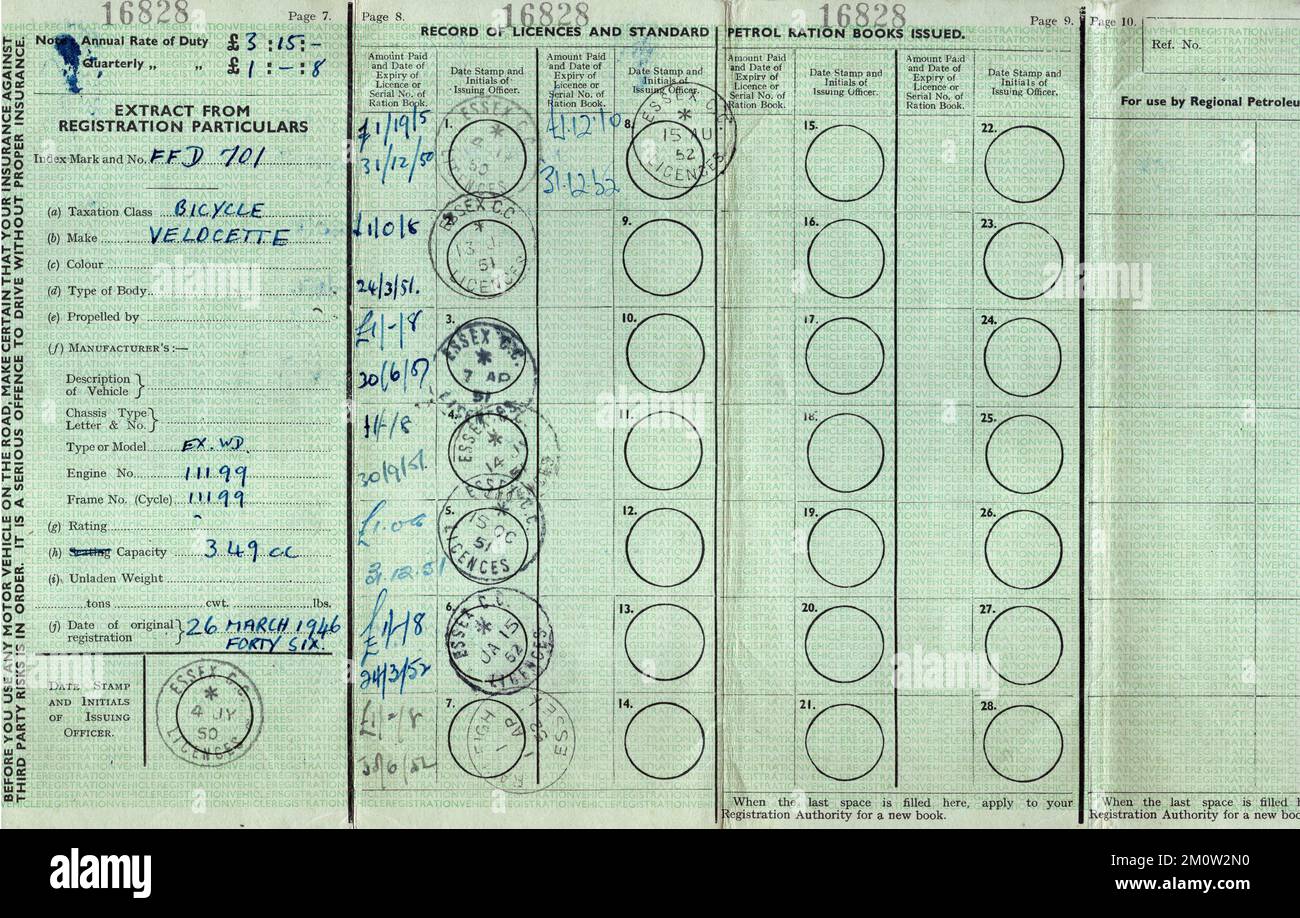 16828
Page 7.
Note Annual Rate of Duty £3 :15:-
Quarterly „ „ £1 :-:8
EXTRACT FROM
REGISTRATION PARTICULARS
Index Mark and No. FFD 701
(a) Taxation Class BICYCLE
(b) Make VELOCETTE
(c) Colour
(d) Type of Body
(e) Propelled by
(f) MANUFACTURER'S :—
Description
of Vehicle }
Chassis Type
Letter & No. }
Type or Model EX. WD.
Engine No. 11199
Frame No. (Cycle) 11199
(g) Rating
(h) Seating Capacity 349 cc
(i) Unladen Weight
tons cwt. lbs.
(j) Date of original
registration } 26 MARCH 1946
FORTY SIX.
DATE STAMP
AND INITIALS
OF ISSUING
OFFICER.
ESSEX C.C.
4 JY
50
LICENCES
BEFORE YOU USE ANY MOTOR VEHICLE ON THE ROAD, MAKE CERTAIN THAT YOUR INSURANCE AGAINST
THIRD PARTY RISKS IS IN ORDER. IT IS A SERIOUS OFFENCE TO DRIVE WITHOUT PROPER INSURANCE.
Page 8.
16828
16828
Page 9.
RECORD OF LICENCES AND STANDARD PETROL RATION BOOKS ISSUED.
Amount Paid
and Date of
Expiry of
Licence or
Serial No. of
Ration Book.
Date Stamp and
Initials of
Issuing Officer.
Amount Paid
and Date of
Expiry of
Licence or
Serial No. of
Ration Book.
Date Stamp and
Initials of
Issuing Officer.
Amount Paid
and Date of
Expiry of
Licence or
Serial No. of
Ration Book.
Date Stamp and
Initials of
Issuing Officer.
Amount Paid
and Date of
Expiry of
Licence or
Serial No. of
Ration Book.
Date Stamp and
Initials of
Issuing Officer.
£1/19/5
31/12/50
1.
ESSEX C.C.
50
LICENCES
24/3/51.
2.
ESSEX C.C.
13
51
LICENCES
£1/-/8
30/6/51
3.
ESSEX C.C.
7 AP
51
30/9/51.
4.
ESSEX
14
31.12.51
5.
15 OC
51
LICENCES
£1/-/8
24/3/52
6.
ESSEX C.C.
JA 15
52
LICENCES
£1/-/8
7.
AP
52
ESSEX
£1.12.10
31.12.52
8.
ESSEX C.C.
15 AU
52
LICENCES
9.
10.
11.
12.
13.
14.
15.
16.
17.
18.
19.
20.
21.
22.
23.
24.
25.
26.
27.
28.
When the last space is filled here, apply to your
Registration Authority for a new book.
Page 10.
Ref. No.
For use by Regional Petroleu
When the last space is filled h
Registration Authority for a new boo
alamy
Image ID: 2M0W2N0
www.alamy.com